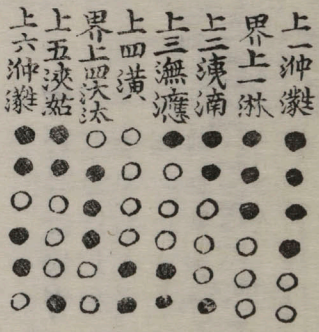 上一沖
界上一淋
上二洟湳
上三潕
上四潢
界上四沃汰
上五浹姑
上六沖